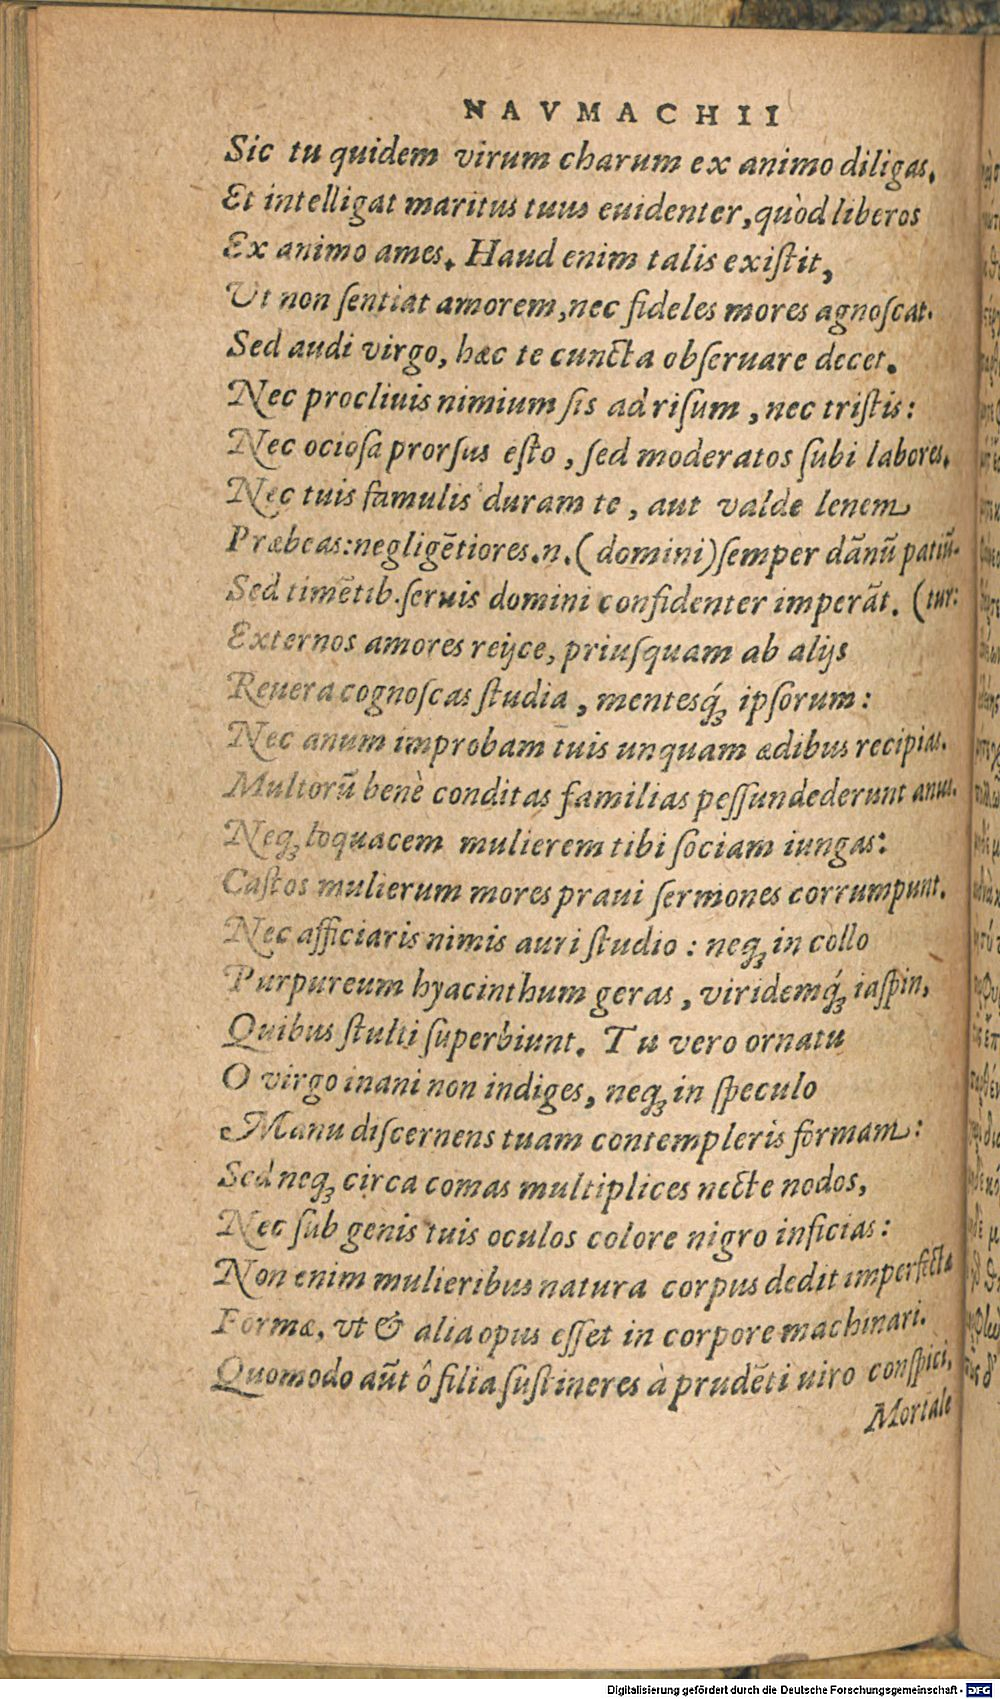 NAVMACHII
Sic tu quidem virum charum ex animo diligas,
Et intelligat maritus tuus euidenter, quòd liberos
Ex animo ames. Haud enim talis exiſtit,
Vt non ſentiat amorem, nec fideles mores agnoſcat.
Sed audi virgo, hæc te cuncta obſeruare decet.
Nec procliuis nimium ſis ad riſum, nec triſtis:
Nec ocioſa prorſus eſto, ſed moderatos ſubi labores,
Nec tuis famulis duram te, aut valde lenem
Præbeas: negligẽtiores.n.(domini) ſemper dãnũ patiũ-
Sed timẽtib. ſeruis domini confidenter imperãt. (tur:
Externos amores reijce, priuſquam ab alijs
Reuera cognoſcas ſtudia, mentesq́; ipſorum:
Nec anum improbam tuis unquam ædibus recipias.
Multorũ benè conditas familias peſſundederunt anus.
Neq; loquacem mulierem tibi ſociam iungas:
Caſtos mulierum mores praui ſermones corrumpunt.
Nec afficiaris nimis auri ſtudio: neq; in collo
Purpureum hyacinthum geras, viridemq́; iaſpin,
Quibus ſtulti ſuperbiunt. Tu vero ornatu
O virgo inani non indiges, neq; in ſpeculo
Manu diſcernens tuam contempleris formam:
Sed neq; circa comas multiplices necte nodos,
Nec ſub genis tuis oculos colore nigro inficias:
Non enim mulieribus natura corpus dedit imperfectæ
Formæ, vt & alia opus eſſet in corpore machinari.
Quomodo aũt ô filia ſuſtineres à prudẽti uiro conſpici,
Mortale
Digitalisierung gefördert durch die Deutsche Forschungsgemeinschaft - DFG